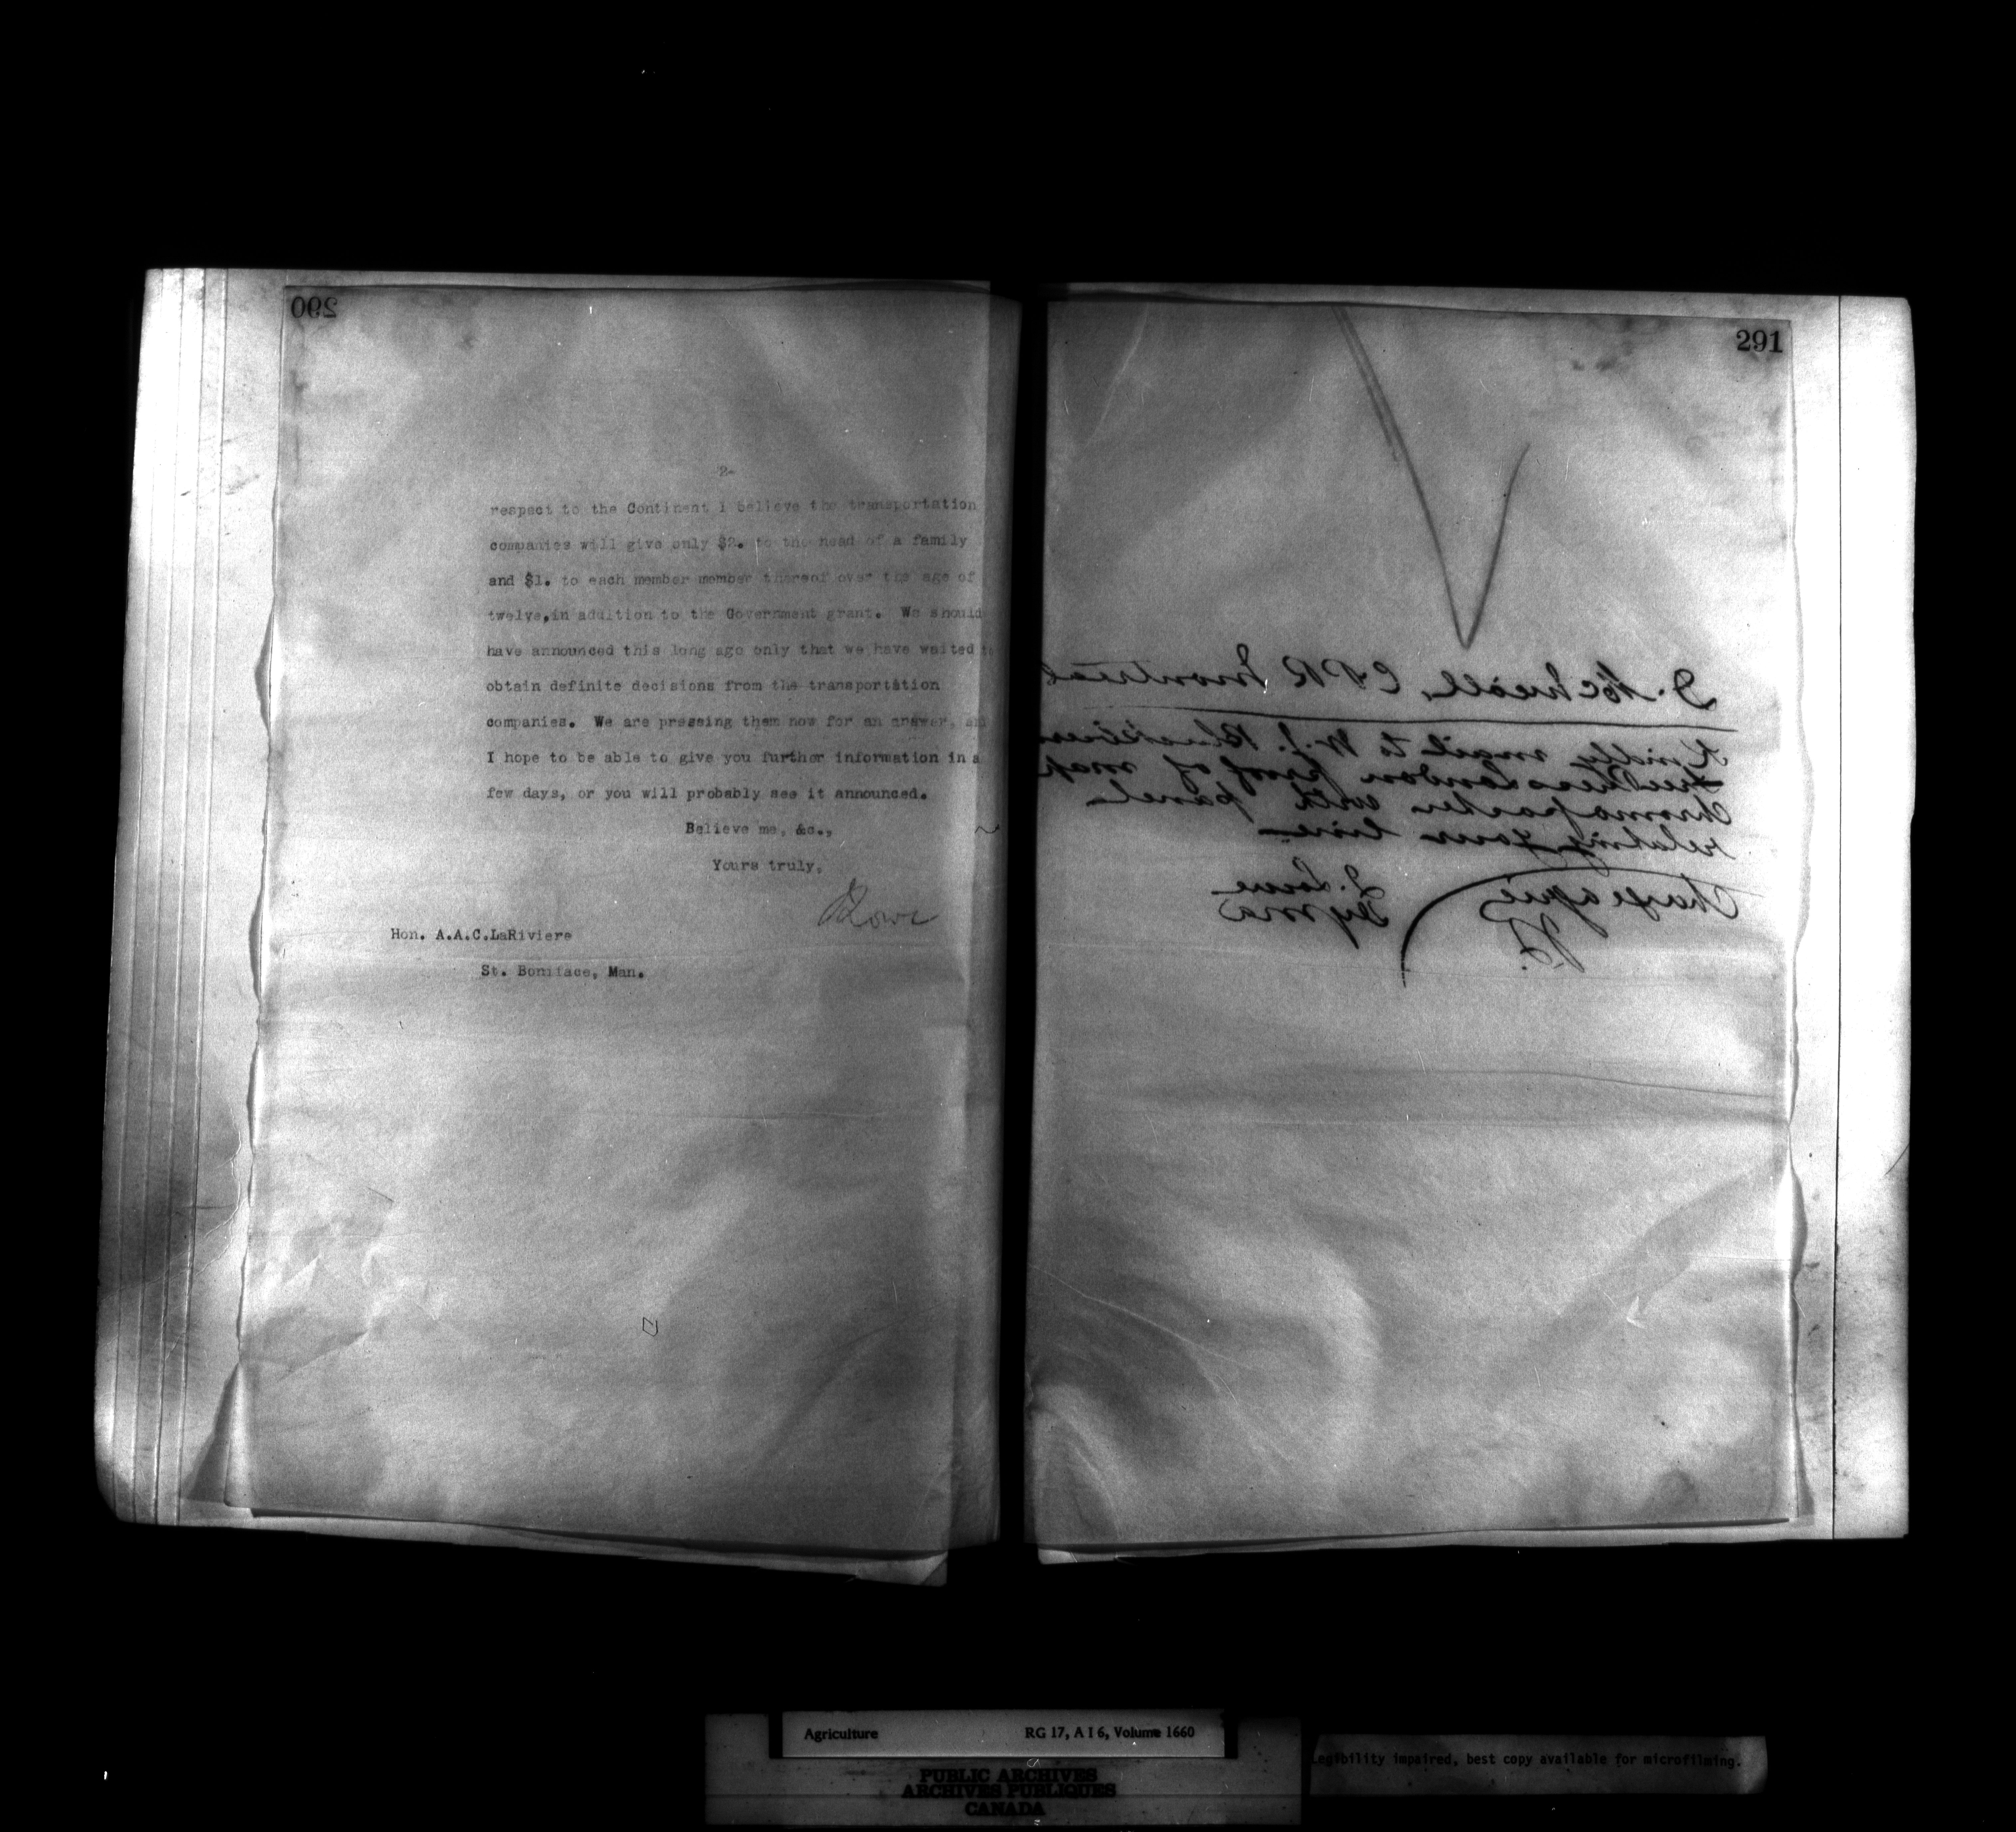 290
2-
respect to the Continent I believe the transportation
companies will give only $2. to the head of a family
and $1. to each member member thereof over the age of
twelve,in addition to the Government grant. We should
have announced this long ago only that we have waited to
obtain definite decisions from the transportation
companies. We are pressing them now for an answer, and
I hope to be able to give you further information in a
few days, or you will probably see it announced.
Believe me, &c.,
Yours truly,
JLowe
Hon. A.A.C.LaRiviere
St. Boniface, Man.
291
D. McNicoll, CPR Montreal
Kindly mail to W.J. Blackburn
Free Press London proof of map
Chromo poster with panel
relating your line
J. Lowe
Dy M A
Charge agric
JL.
Agriculture RG 17, A I 6, Volume 1660
PUBLIC ARCHIVES
ARCHIVES PUBLIQUES
CANADA
Legibility impaired, best copy available for microfilming.